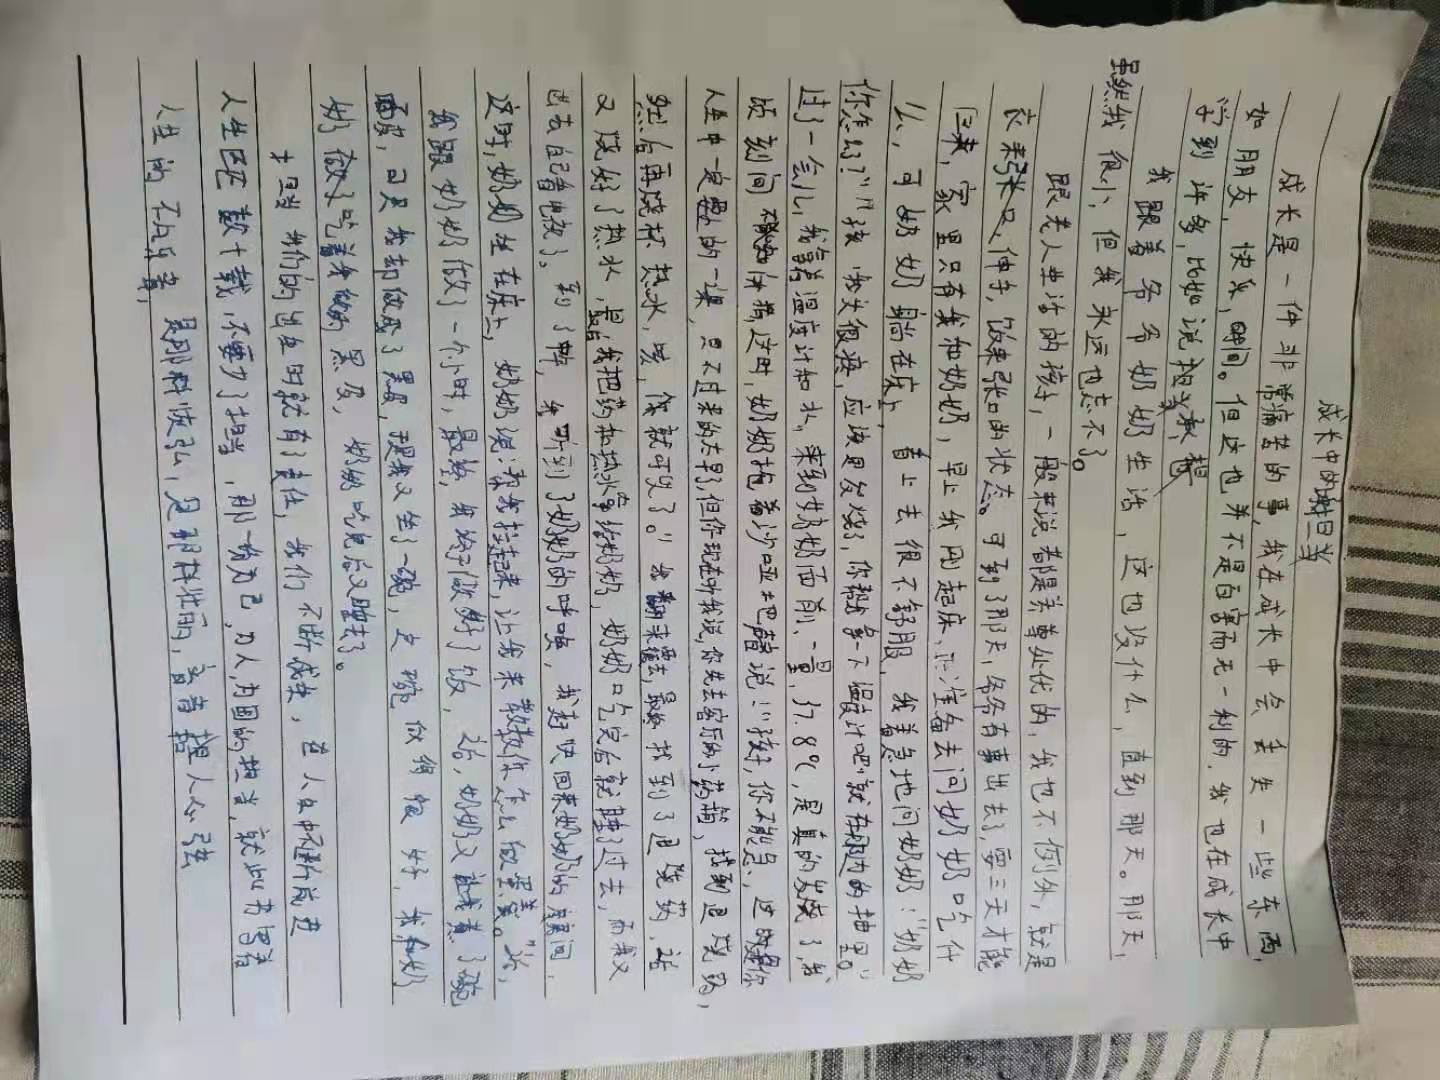 成长中的担当
成长是一件非常痛苦的事,我在成长中会丢失一些东西,
如朋友,快乐,时间。但这也并不是百害而无一利的,我也在成长中
学到许多,比如说担当
我跟着爷爷奶奶生活,这也没什么,直到那天。那天,
虽然我很小,但我永远也忘不了。
跟老人生活的孩子,一般来说都是养尊处优的,我也不例外,就是
衣来张口,伸手,饭来张口的状态。可到了那天,爷爷有事出去了,要三天才能
回来,家里只有我和奶奶,早上我刚起床,准备去问奶奶吃什
么,可奶奶躺在床上,看上去很不舒服,我着急地问奶奶:"奶奶
你怎么了?""孩,我头很疼,应该是发烧了,你帮我拿一下温度计吧"就在那边的抽里。"
过了一会儿,我拿着温度计和水,来到奶奶面前,一量,37.8℃,是真的发烧了,我
顷刻间 这时,奶奶拖着沙哑 说:"孩子,你不能急,这的是你
人生中一定要上的一课,只不过来的太早了,但你现在听我说,你先去客厅的小药箱,找到退烧药,
然后再烧杯热水,嗯,你就可以了。"我翻来覆去,最终找到了退烧药,
又烧好了热水, 我把药和热水拿给奶奶,奶奶吃完后就睡了过去,而我又
出去自己看电视了。到了 ,我听到了奶奶的呼唤,我赶快回来奶奶的房间,
这时,奶奶坐在床上,奶奶说:帮我拉起来,让我来教教你怎么做
我跟奶奶做了一个小时,最终,我终于做好了饭, 奶奶又让我煮了碗
面皮,可是我却做成了 ,于是我又坐了一碗, 做得很好,我和奶
奶做了吃着我做的 ,奶奶吃完后又睡去了。
担当我们的出生时就有了责任,我们不断成长,在人生中不断前进
人生匹匹数十载,不要少了担当,那一份为己,为人,为国的担当,就此书写着
人生的 , 是那样恢弘,是那样壮丽,